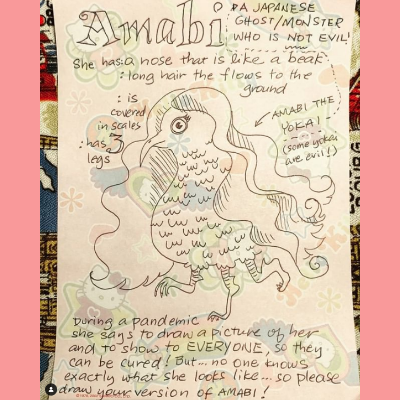 Amabi
→ A JAPANESE
GHOST/MONSTER
WHO IS NOT EVIL!
She has a nose that is like a beak
: long hair the flows to the
ground
: is
covered
in scales
: has 3
legs
AMABI THE
YOKAI -
(some yokai
are evil!)
During a pandemic
she says to draw a picture of her
and to show to EVERYONE, so they
can be cured! But... no one knows
exactly what she looks like... so please
draw your version of AMABI!